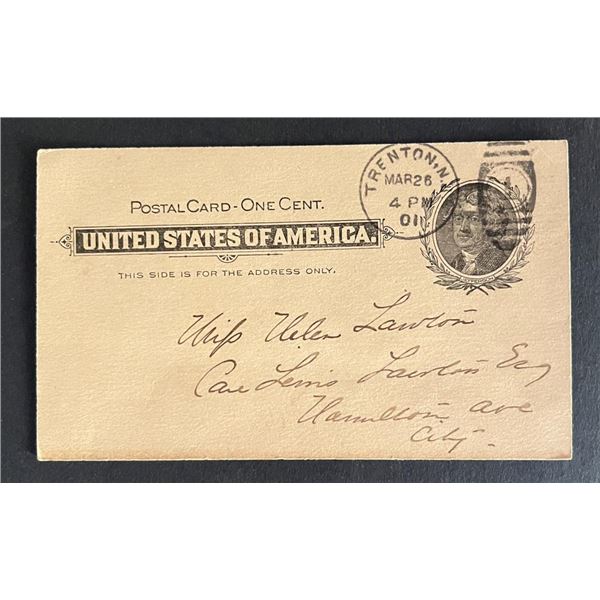 POSTAL CARD - ONE CENT.
UNITED STATES OF AMERICA.
THIS SIDE IS FOR THE ADDRESS ONLY.
TRENTON, N.
MAR 26
4 PM
01
Miss Helen Lawton
Care Lewis Lawton Esq
Hamilton Ave
City -